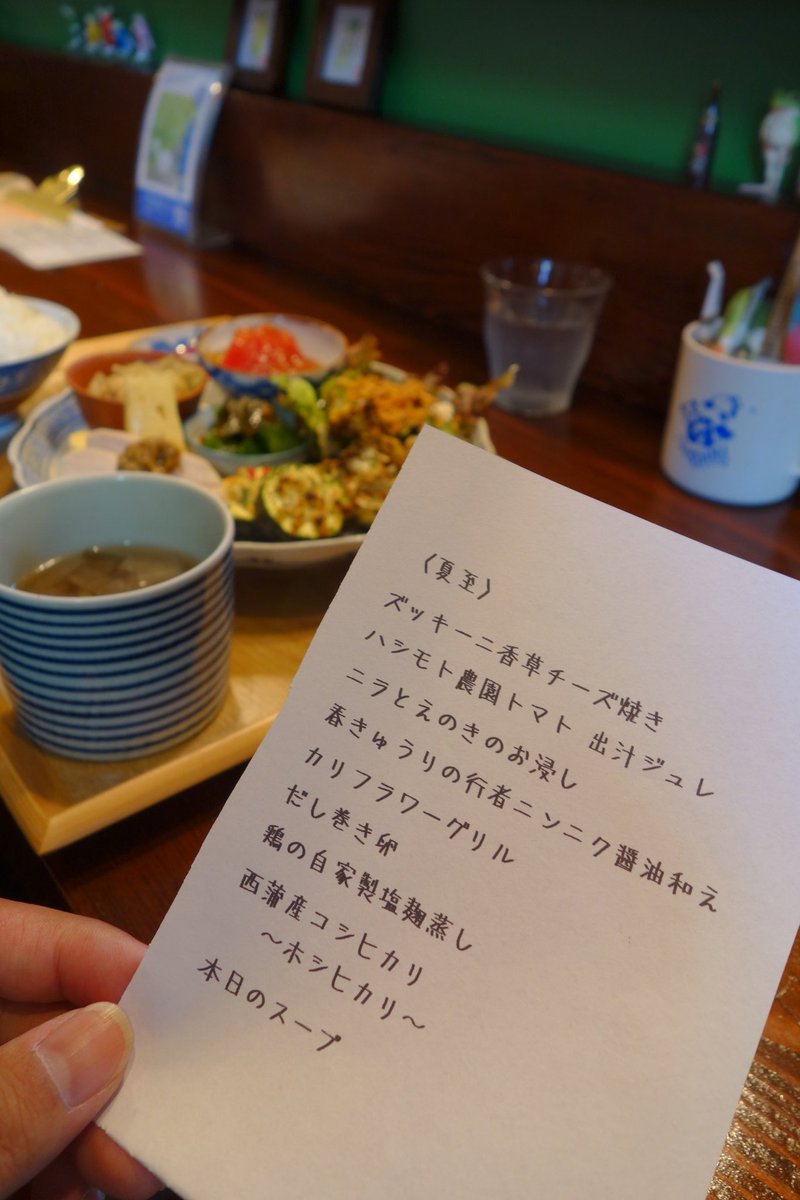 〈夏至〉
ズッキーニ香草チーズ焼き
ハシモト農園トマト 出汁ジュレ
ニラとえのきのお浸し
春きゅうりの行者ニンニク醤油和え
カリフラワーグリル
だし巻き卵
鶏の自家製塩麹蒸し
西蒲産コシヒカリ
〜ホシヒカリ〜
本日のスープ